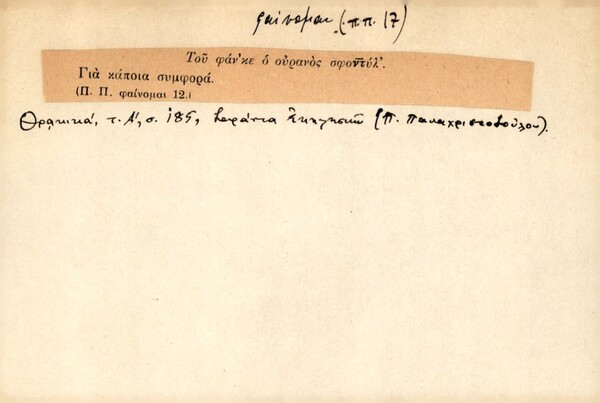 φαίνομαι (Π.Π. 17)
Τοῦ φάν'κε ὁ οὐρανὸς σφοντύλ'.
Γιὰ κάποια συμφορά.
(Π. Π. φαίνομαι 12.)
Θρακικά, τ. Α', σ. 185, Σαράντα Ἐκκλησιῶν (Π. Παπαχριστοδούλου).